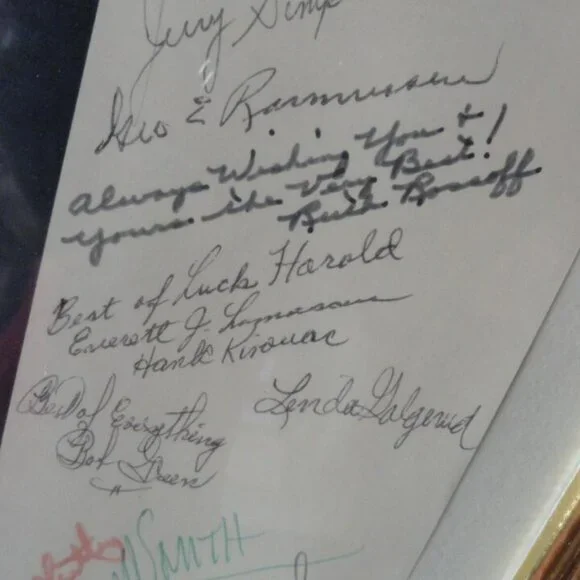 Jerry
Geo E Rasmussen
Always Wishing You +
yours the Very Best!
Ruth Rosoff
Best of Luck Harold
Everett J.
Hank Kirouac
Best of Everything
Bob Green
Linda
SMITH